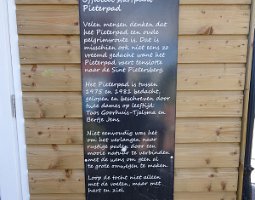 Officiële startpunt
Pieterpad
Velen mensen denken dat
het Pieterpad een oude
pelgrimsroute is. Dit is
misschien ook niet eens zo
vreemd gedacht want het
Pieterpad voert tenslotte
naar de Sint Pietersberg.
Het Pieterpad is tussen
1975 en 1981 bedacht,
gelopen en beschreven door
twee dames op leeftijd:
Toos Goorhuis-Tjalsma en
Bertje Jens.
Niet eenvoudig was het
om het verlangen naar
rustige paden door een
mooie natuur te verbinden
met de wens om geen al
te grote omwegen te maken.
Loop de tocht niet alleen
met de voeten, maar met
hart en ziel.